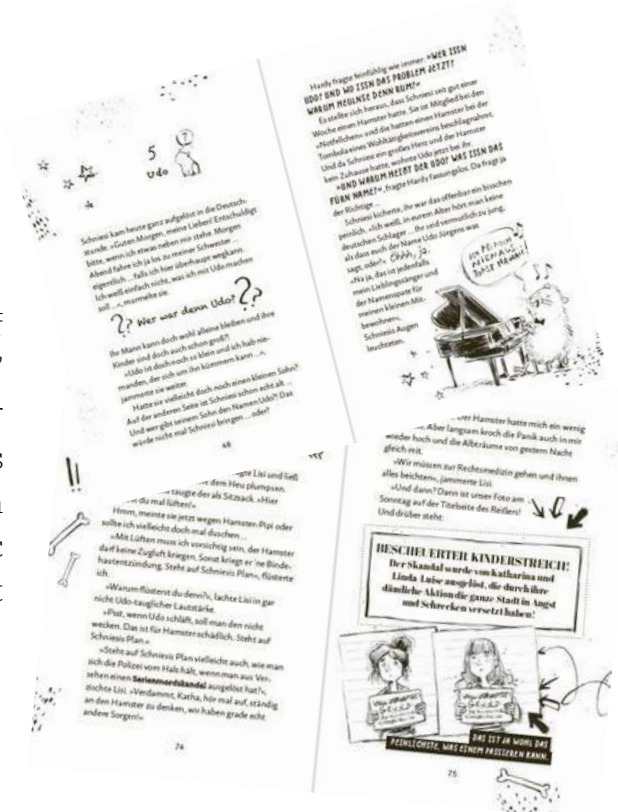 5
Udo
Schniesi kam heute ganz aufgelöst in die Deutsch-
stunde. »Guten Morgen, meine Lieben! Entschuldigt
bitte, wenn ich etwas neben mir stehe. Morgen
Abend fahre ich ja los zu meiner Schwester ...
eigentlich ... falls ich hier überhaupt wegkann.
Ich weiß einfach nicht, was ich mit Udo machen
soll ...«, murmelte sie.
?? Wer war denn Udo? ??
Ihr Mann kann doch wohl alleine bleiben und ihre
Kinder sind doch auch schon groß?!
»Udo ist doch noch so klein und ich hab nie-
manden, der sich um ihn kümmern kann ...«,
jammerte sie weiter.
Hatte sie vielleicht doch noch einen kleinen Sohn?
Auf der anderen Seite ist Schniesi schon echt alt ...
Und wer gibt seinem Sohn den Namen Udo?! Das
würde nicht mal Schniesi bringen ... oder?
68
Hardy fragte feinfühlig wie immer: »WER ISSN
UDO? UND WO ISSN DAS PROBLEM JETZT?
WARUM HEULNSE DENN RUM?«
Es stellte sich heraus, dass Schniesi seit gut einer
Woche einen Hamster hatte. Sie ist Mitglied bei den
»Notfellchen« und die hatten einen Hamster bei der
Tombola eines Wohltätigkeitsvereins beschlagnahmt.
Und da Schniesi ein großes Herz und der Hamster
kein Zuhause hatte, wohnte Udo jetzt bei ihr.
»UND WARUM HEIßT DER UDO? WAS ISSN DAS
FÜRN NAME?«, fragte Hardy fassungslos. Da fragt ja
der Richtige ...
Schniesi kicherte, ihr war das offenbar ein bisschen
peinlich. »Ich weiß, in eurem Alter hört man keine
deutschen Schlager ... Ihr seid vermutlich zu jung,
als dass euch der Name Udo Jürgens was
sagt, oder?« Ohhh, ja.
»Na ja, das ist jedenfalls
mein Lieblingssänger und
der Namenspate für
meinen kleinen Mit-
bewohner«,
Schniesis Augen
leuchteten.
ICH WAR NOCH
NIEMALS
IN
!!
Lisi und ließ
dem Heu plumpsen.
taugte der als Sitzsack. »Hier
du mal lüften!«
Hmm, meinte sie jetzt wegen Hamster-Pipi oder
sollte ich vielleicht doch mal duschen ...
»Mit Lüften muss ich vorsichtig sein, der Hamster
darf keine Zugluft kriegen. Sonst kriegt er 'ne Binde-
hautentzündung. Steht auf Schniesis Plan«, flüsterte
ich.
»Warum flüsterst du denn?«, lachte Lisi in gar
nicht Udo-tauglicher Lautstärke.
»Psst, wenn Udo schläft, soll man den nicht
wecken. Das ist für Hamster schädlich. Steht auf
Schniesis Plan.«
»Steht auf Schniesis Plan vielleicht auch, wie man
sich die Polizei vom Hals hält, wenn man aus Ver-
sehen einen Serienmordskandal ausgelöst hat?«,
zischte Lisi. »Verdammt, Katha, hör mal auf, ständig
an den Hamster zu denken, wir haben grade echt
andere Sorgen!«
74
Hamster hatte mich ein wenig
Aber langsam kroch die Panik auch in mir
wieder hoch und die Albträume von gestern Nacht
gleich mit.
»Wir müssen zur Rechtsmedizin gehen und ihnen
alles beichten«, jammerte Lisi.
»Und dann? Dann ist unser Foto am
Sonntag auf der Titelseite des Reißers!
Und drüber steht:
BESCHEUERTER KINDERSTREICH!
Der Skandal wurde von Katharina und
Linda-Luise ausgelöst, die durch ihre
dämliche Aktion die ganze Stadt in Angst
und Schrecken versetzt haben!
DAS IST JA WOHL DAS
PEINLICHSTE, WAS EINEM PASSIEREN KANN.
75